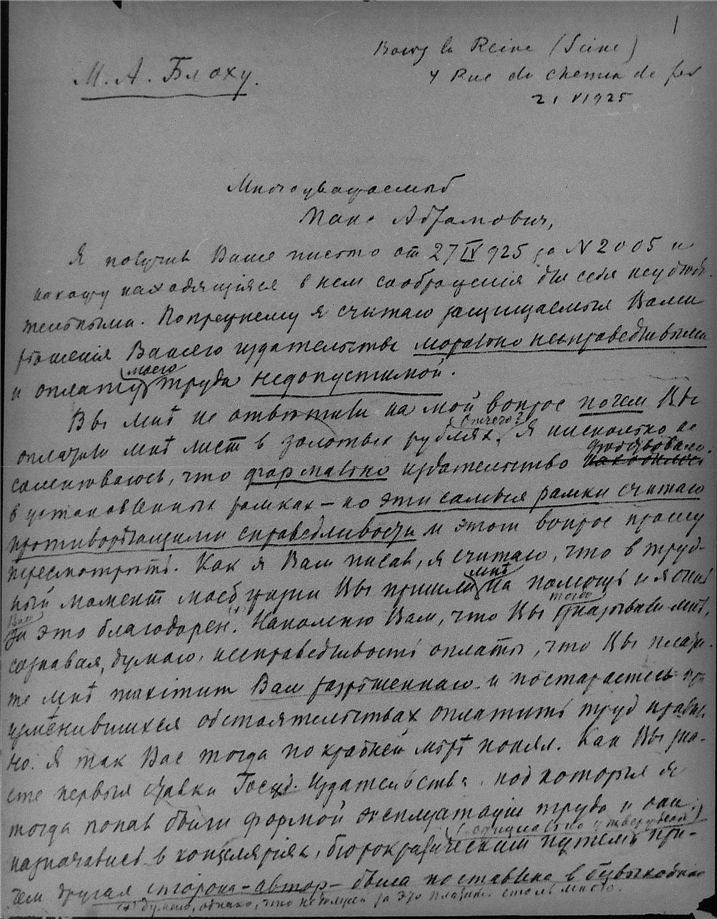 1
М. А. Блоху.
Bourg la Reine (Seine)
4 Rue du Chemin de fer
21 V 1925
Многоуважаемый
Макс Абрамович,
Я получил Ваше письмо от 27 IV 925 за N 2005 и
нахожу находящияся в нем сообщения для себя неубѣди-
тельными. Попрежнему я считаю защищаемыя Вами
рѣшения Вашего издательства морально несправедливыми
и оплату моего труда недопустимой.
Вы мнѣ не отвѣтили на мой вопрос почем Вы
оплатили мнѣ лист в золотых рублях. Я нисколько не
сомневаюсь, что формально издательство действовало
в установленных рамках – но эти самыя рамки считаю
противорѣчащими справедливости и этот вопрос прошу
пересмотрѣть. Как я Вам писал, я считаю, что в труд-
ный момент моей жизни Вы пришли мнѣ на помощь и я очень
Вам за это благодарен. Напомню Вам, что Вы тогда указывали мнѣ,
сознавая, думаю, несправедливость оплаты, что Вы плати-
те мнѣ maximum Вам разрѣшеннаго и постараетесь при
измѣнившихся обстоятельствах оплатить труд правиль-
но. Я так Вас тогда по крайней мѣрѣ понял. Как Вы зна-
ете первыя ставки Госуд. Издательства, под которыя я
тогда попал были формой эксплуатации труда и они
назначались в канцеляриях, бюрократическим путем при-
чем другая сторона – автор – была поставлена в безвыходное
(+) думаю, однако, что